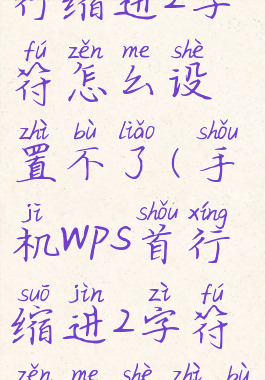 行缩进2字
fú zěn me shè
符怎么设
zhì bù liǎo shǒu
置不了(手
jī shǒu xíng
机WPS首行
suō jìn zì fú
缩进2字符
zěn me shè zhì bù